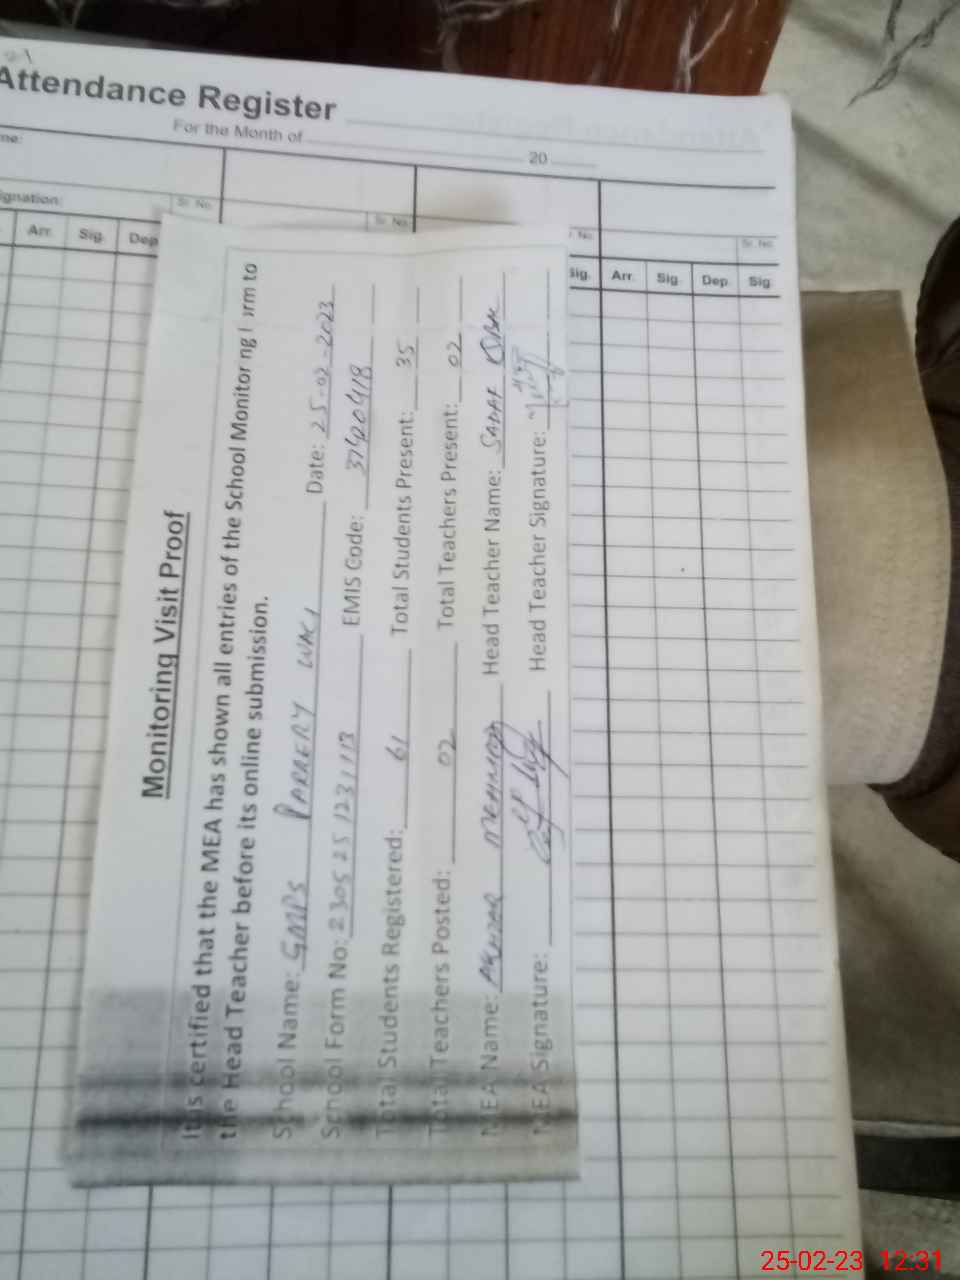 Attendance Register
For the Month of 20
me:
ignation:
Sr. No.
Sr. No.
No.
Sr. No.
Arr. Sig. Dep
Sig. Arr. Sig. Dep. Sig.
Monitoring Visit Proof
It is certified that the MEA has shown all entries of the School Monitoring orm to
the Head Teacher before its online submission.
School Name: GMPS PARRERY Date: 25-02-2023
School Form No: 2305251231113 EMIS Code: 37420418
Total Students Registered: 61 Total Students Present: 35
Total Teachers Posted: 02 Total Teachers Present: 02
MEA Name: MEHMOOD Head Teacher Name: SADAF
MEA Signature: Head Teacher Signature:
25-02-23 12:31